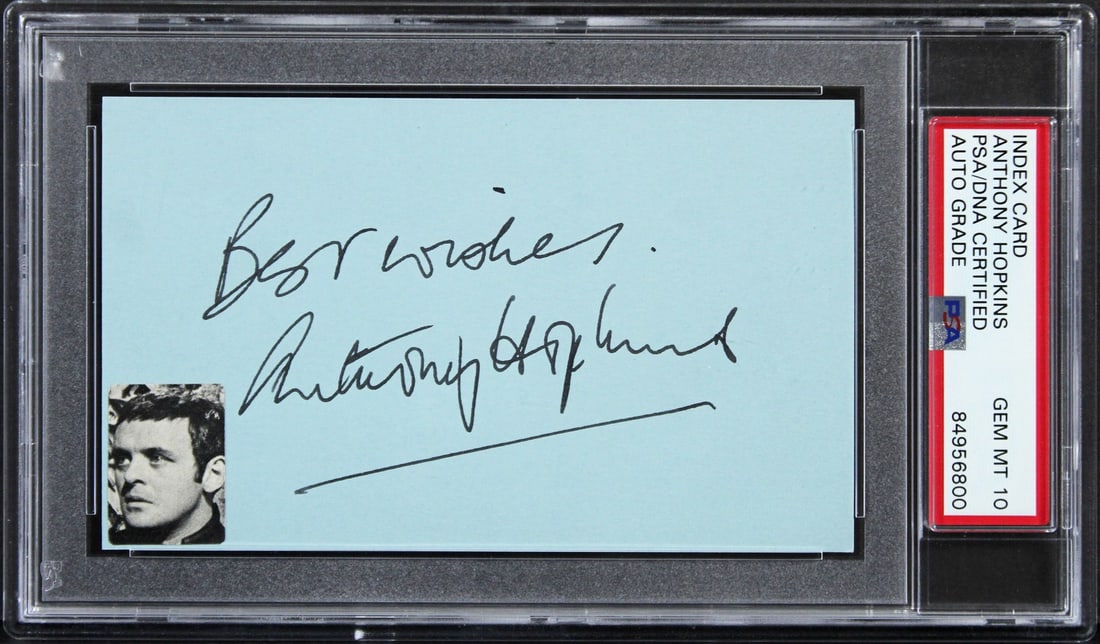 Best wishes.
Anthony Hopkins
INDEX CARD
ANTHONY HOPKINS
PSA/DNA CERTIFIED
AUTO GRADE
PSA
GEM MT 10
84956800